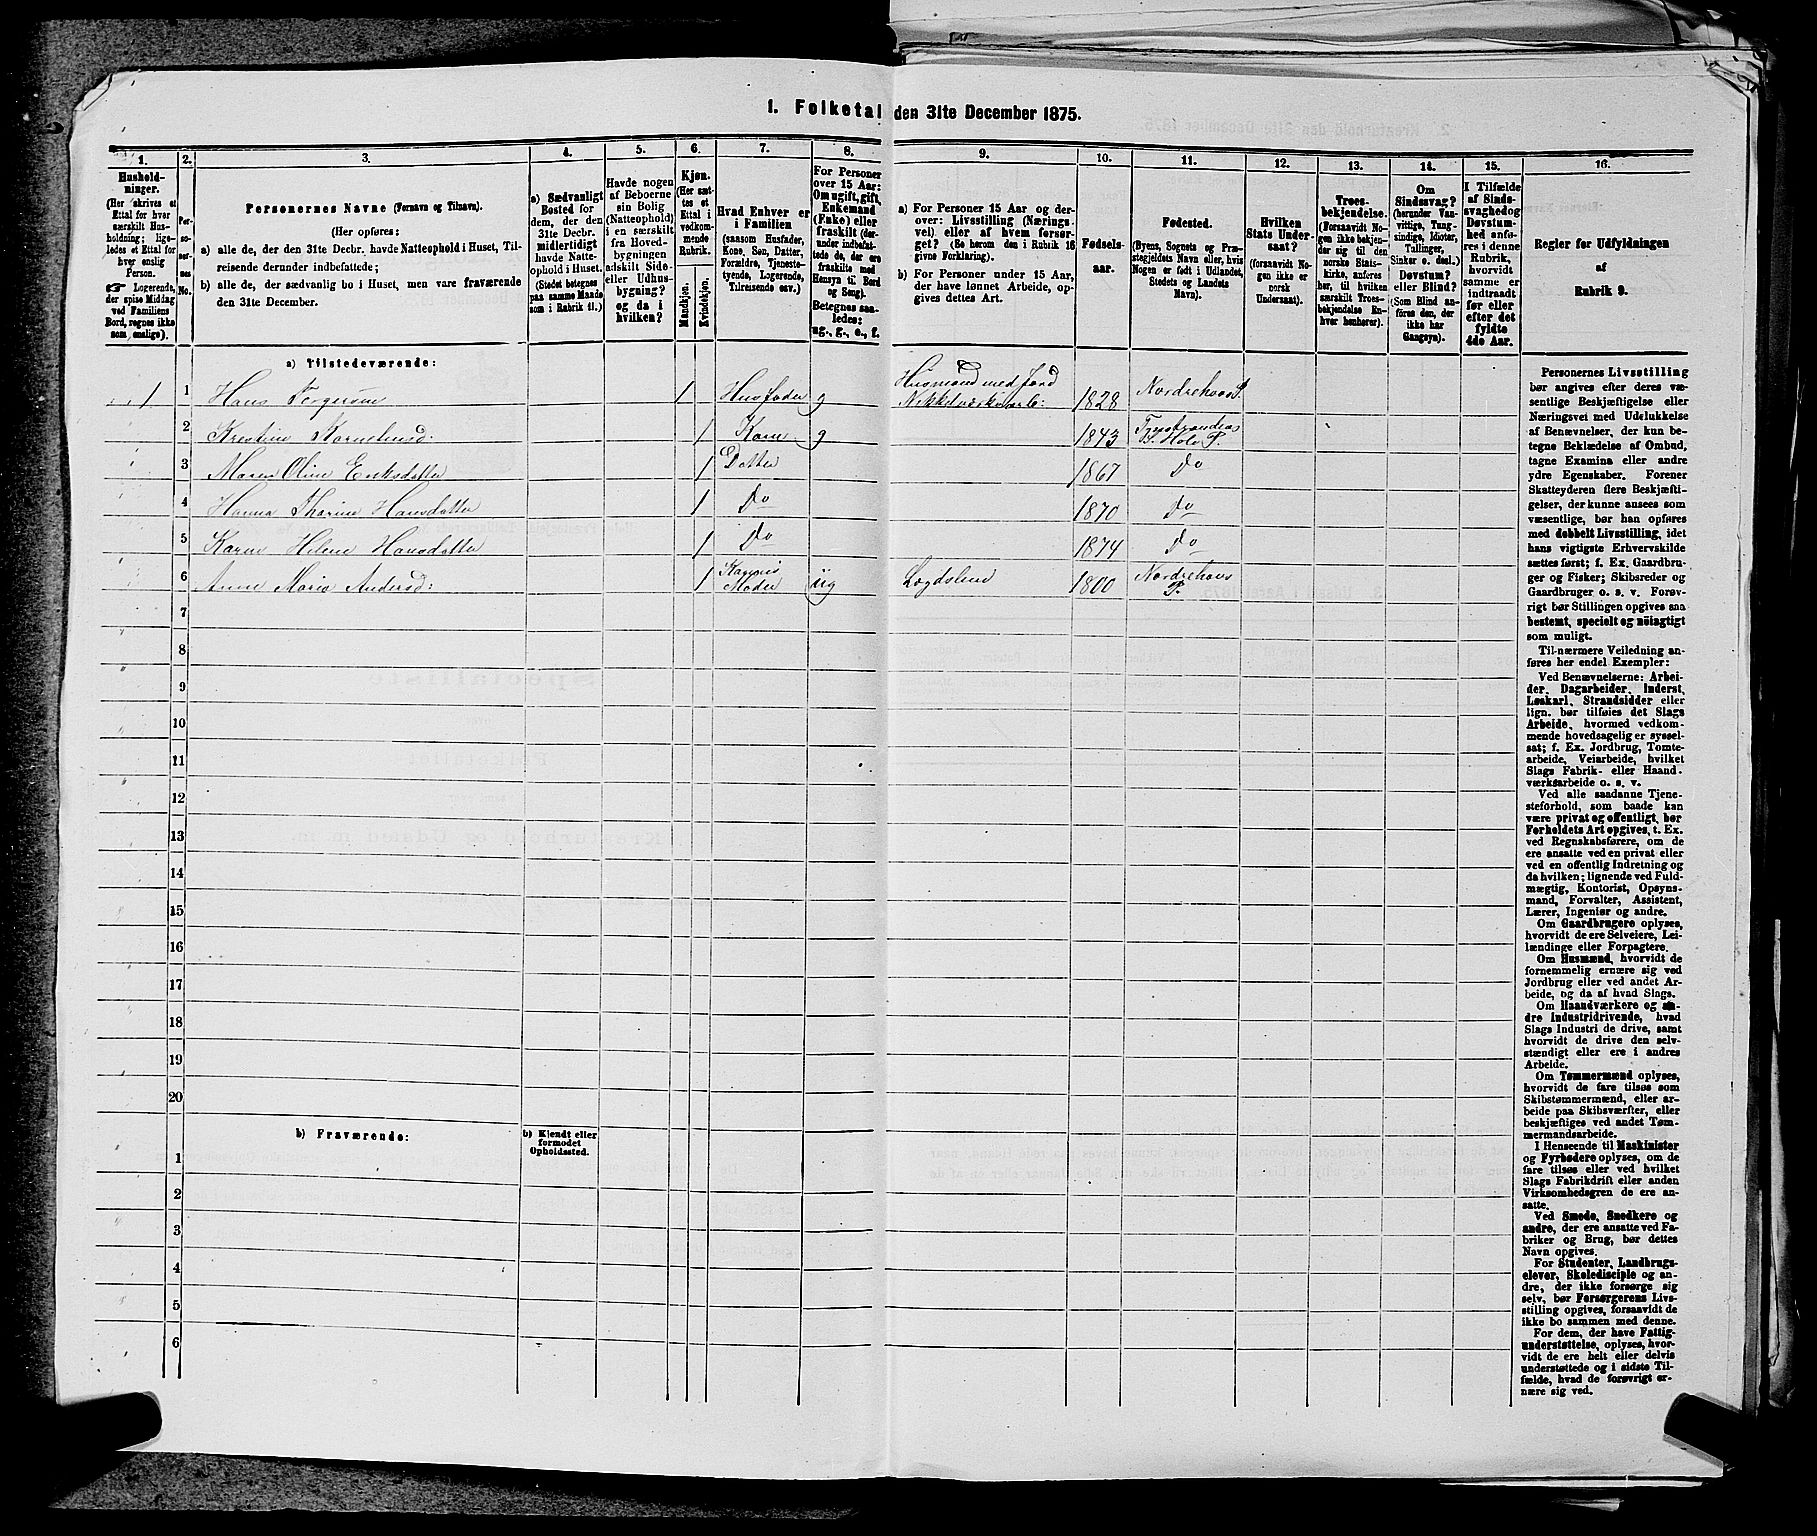 1. Folketal den 31te December 1875.
1.
2.
3.
4.
5.
6.
7.
8.
9.
10.
11.
12.
13.
14.
15.
16.
Hushold-
ninger.
(Her skrives et
Ettal for hver
særskilt Hus-
holdning; lige-
ledes et Ettal for
hver enslig
Person.
☞ Logerende,
der spise Middag
ved Familiens
Bord, regnes ikke
som enslige).
Per-
so-
ner-
nes
No.
Personernes Navne (Fornavn og Tilnavn).
(Her opføres:
a) alle de, der den 31te Decbr. havde Natteophold i Huset, Til-
reisende derunder indbefattede;
b) alle de, der sædvanlig bo i Huset, men vare fraværende
den 31te December.
a) Sædvanligt
Bosted for
dem, der den
31te Decbr.
midlertidigt
havde Natte-
ophold i Huset.
(Stedet betegnes
paa samme Maade
som i Rubrik 11.)
Havde nogen
af Beboerne
sin Bolig
(Natteophold)
i en særskilt
fra Hoved-
bygningen
adskilt Side-
eller Udhus-
bygning?
og da i
hvilken?
Kjøn.
(Her sæt-
tes et
Ettal i
vedkom-
mende
Rubrik.
Mandkjøn.
Kvindekjøn.
Hvad Enhver er
i Familien
(saasom Husfader,
Kone, Søn, Datter,
Forældre, Tjeneste-
tyende, Logerende,
Tilreisende osv.)
For Personer
over 15 Aar:
Om ugift, gift,
Enkemand
(Enke) eller
fraskilt (der-
under indbefat-
tede de, der ere
fraskilte med
Hensyn til Bord
og Seng).
Betegnes saa-
ledes:
ug., g., e., f.
a) For Personer 15 Aar og der-
over: Livsstilling (Nærings-
vei) eller af hvem forsør-
get? (Se herom den i Rubrik 16
givne Forklaring).
b) For Personer under 15 Aar,
der have lønnet Arbeide, op-
gives dettes Art.
Fødsels-
aar.
Fødested.
(Byens, Sognets og Præ-
stegjeldets Navn eller, hvis
Nogen er født i Udlandet,
Stedets og Landets
Navn).
Hvilken
Stats Under-
saat?
(forsaavidt No-
gen ikke er
norsk
Undersaat).
Troes-
bekjendelse.
(Forsaavidt No-
gen ikke bekjen-
der sig til den
norske Stats-
kirke, anføres
her, til hvilken
særskilt Troes-
bekjendelse En-
hver henhører).
Om
Sindssvag?
(herunder Van-
vittige, Tung-
sindige, Idioter,
Tullinger,
Sinker o. desl.)
Døvstum?
eller Blind?
(Som Blind an-
føres den, der
ikke har
Gangsyn).
I Tilfælde
af Sinds-
svaghed og
Døvstum-
hed anfø-
res i denne
Rubrik,
hvorvidt
samme er
indtraadt
før eller
efter det
fyldte
4de Aar.
Regler for Udfyldningen
af
Rubrik 9.
a) Tilstedeværende:
1 1 Hans Torgersen 1 Husfader g Husmand med Jord 1828 Nordrehoug P.
2 Kristine Kornelius: 1 Kone g 1843 Hole P.
3 Maren Oline Eriksdatter 1 Datter 1867 Do
4 Hanna Thorine Hansdatter 1 Do 1870 Do
5 Karen Helene Hansdatter 1 Do 1874 Do
6 Anne Maria Andersd: 1 Konens Moder ug Lægdslem 1800 Nordrehous P.
7
8
9
10
11
12
13
14
15
16
17
18
19
20
b) Fraværende:
b) Kjendt eller
formodet
Opholdssted.
1
2
3
4
5
6
Personernes Livsstilling
bør angives efter deres væ-
sentlige Beskjæftigelse eller
Næringsvei med Udelukkelse
af Benævnelser, der kun be-
tegne Beklædelse af Ombud,
tagne Examina eller andre
ydre Egenskaber. Forener
Skatteyderen flere Beskjæfti-
gelser, der kunne ansees som
væsentlige, bør han opføres
med dobbelt Livsstilling, idet
hans vigtigste Erhvervskilde
sættes først; f. Ex. Gaardbru-
ger og Fisker; Skibsreder og
Gaardbruger o. s. v. Forøv-
rigt bør Stillingen opgives saa
bestemt, specielt og nöiagtigt
som muligt.
Til nærmere Veiledning an-
føres her endel Exempler:
Ved Benævnelserne: Arbei-
der, Dagarbeider, Inderst,
Løskarl, Strandsidder eller
lign. bør tilføies det Slags
Arbeide, hvormed vedkom-
mende hovedsagelig er syssel-
sat; f. Ex. Jordbrug, Tomte-
arbeide, Veiarbeide, hvilket
Slags Fabrik- eller Haand-
værksarbeide o. s. v.
Ved alle saadanne Tjene-
steforhold, som baade kan
være privat og offentligt, bør
Forholdets Art opgives, t. Ex.
ved Regnskabsførere, om de
ere ansatte ved en privat eller
ved en offentlig Indretning og
da hvilken; lignende ved Fuld-
mægtig, Kontorist, Opsyns-
mand, Forvalter, Assistent,
Lærer, Ingeniør og andre.
Om Gaardbrugere oplyses,
hvorvidt de ere Selveiere, Lei-
lændinge eller Forpagtere.
Om Husmænd, hvorvidt de
fornemmelig ernære sig ved
Jordbrug eller ved andet Ar-
beide, og da af hvad Slags.
Om Haandværkere og an-
dre Industridrivende, hvad
Slags Industri de drive, samt
hvorvidt de drive den selv-
stændigt eller ere i andres
Arbeide.
Om Tømmermænd oplyses,
hvorvidt de fare tilsøs som
Skibstømmermænd, eller ar-
beide paa Skibsværfter, eller
beskjæftiges ved andet Tøm-
mermandsarbeide.
I Henseende til Maskinister
og Fyrbødere oplyses, om de
fare tilsøs eller ved hvilket
Slags Fabrikdrift eller anden
Virksomhedsgren de ere an-
satte.
Ved Smede, Snedkere og
andre, der ere ansatte ved Fa-
briker og Brug, bør dettes
Navn opgives.
For Studenter, Landbrugs-
elever, Skoledisciple og an-
dre, der ikke forsørge sig
selv, bør Forsørgerens Livs-
stilling opgives, forsaavidt de
ikke bo sammen med denne.
For dem, der have Fattig-
understøttelse, oplyses, hvor-
vidt de ere helt eller delvis
understøttede og i sidste Til-
fælde, hvad de forøvrigt er-
nære sig ved.